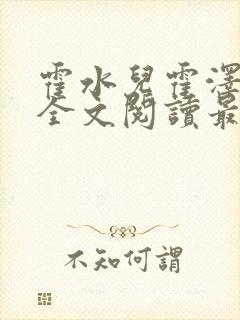 霍水兒霍澤
全文閱讀最
不知何謂